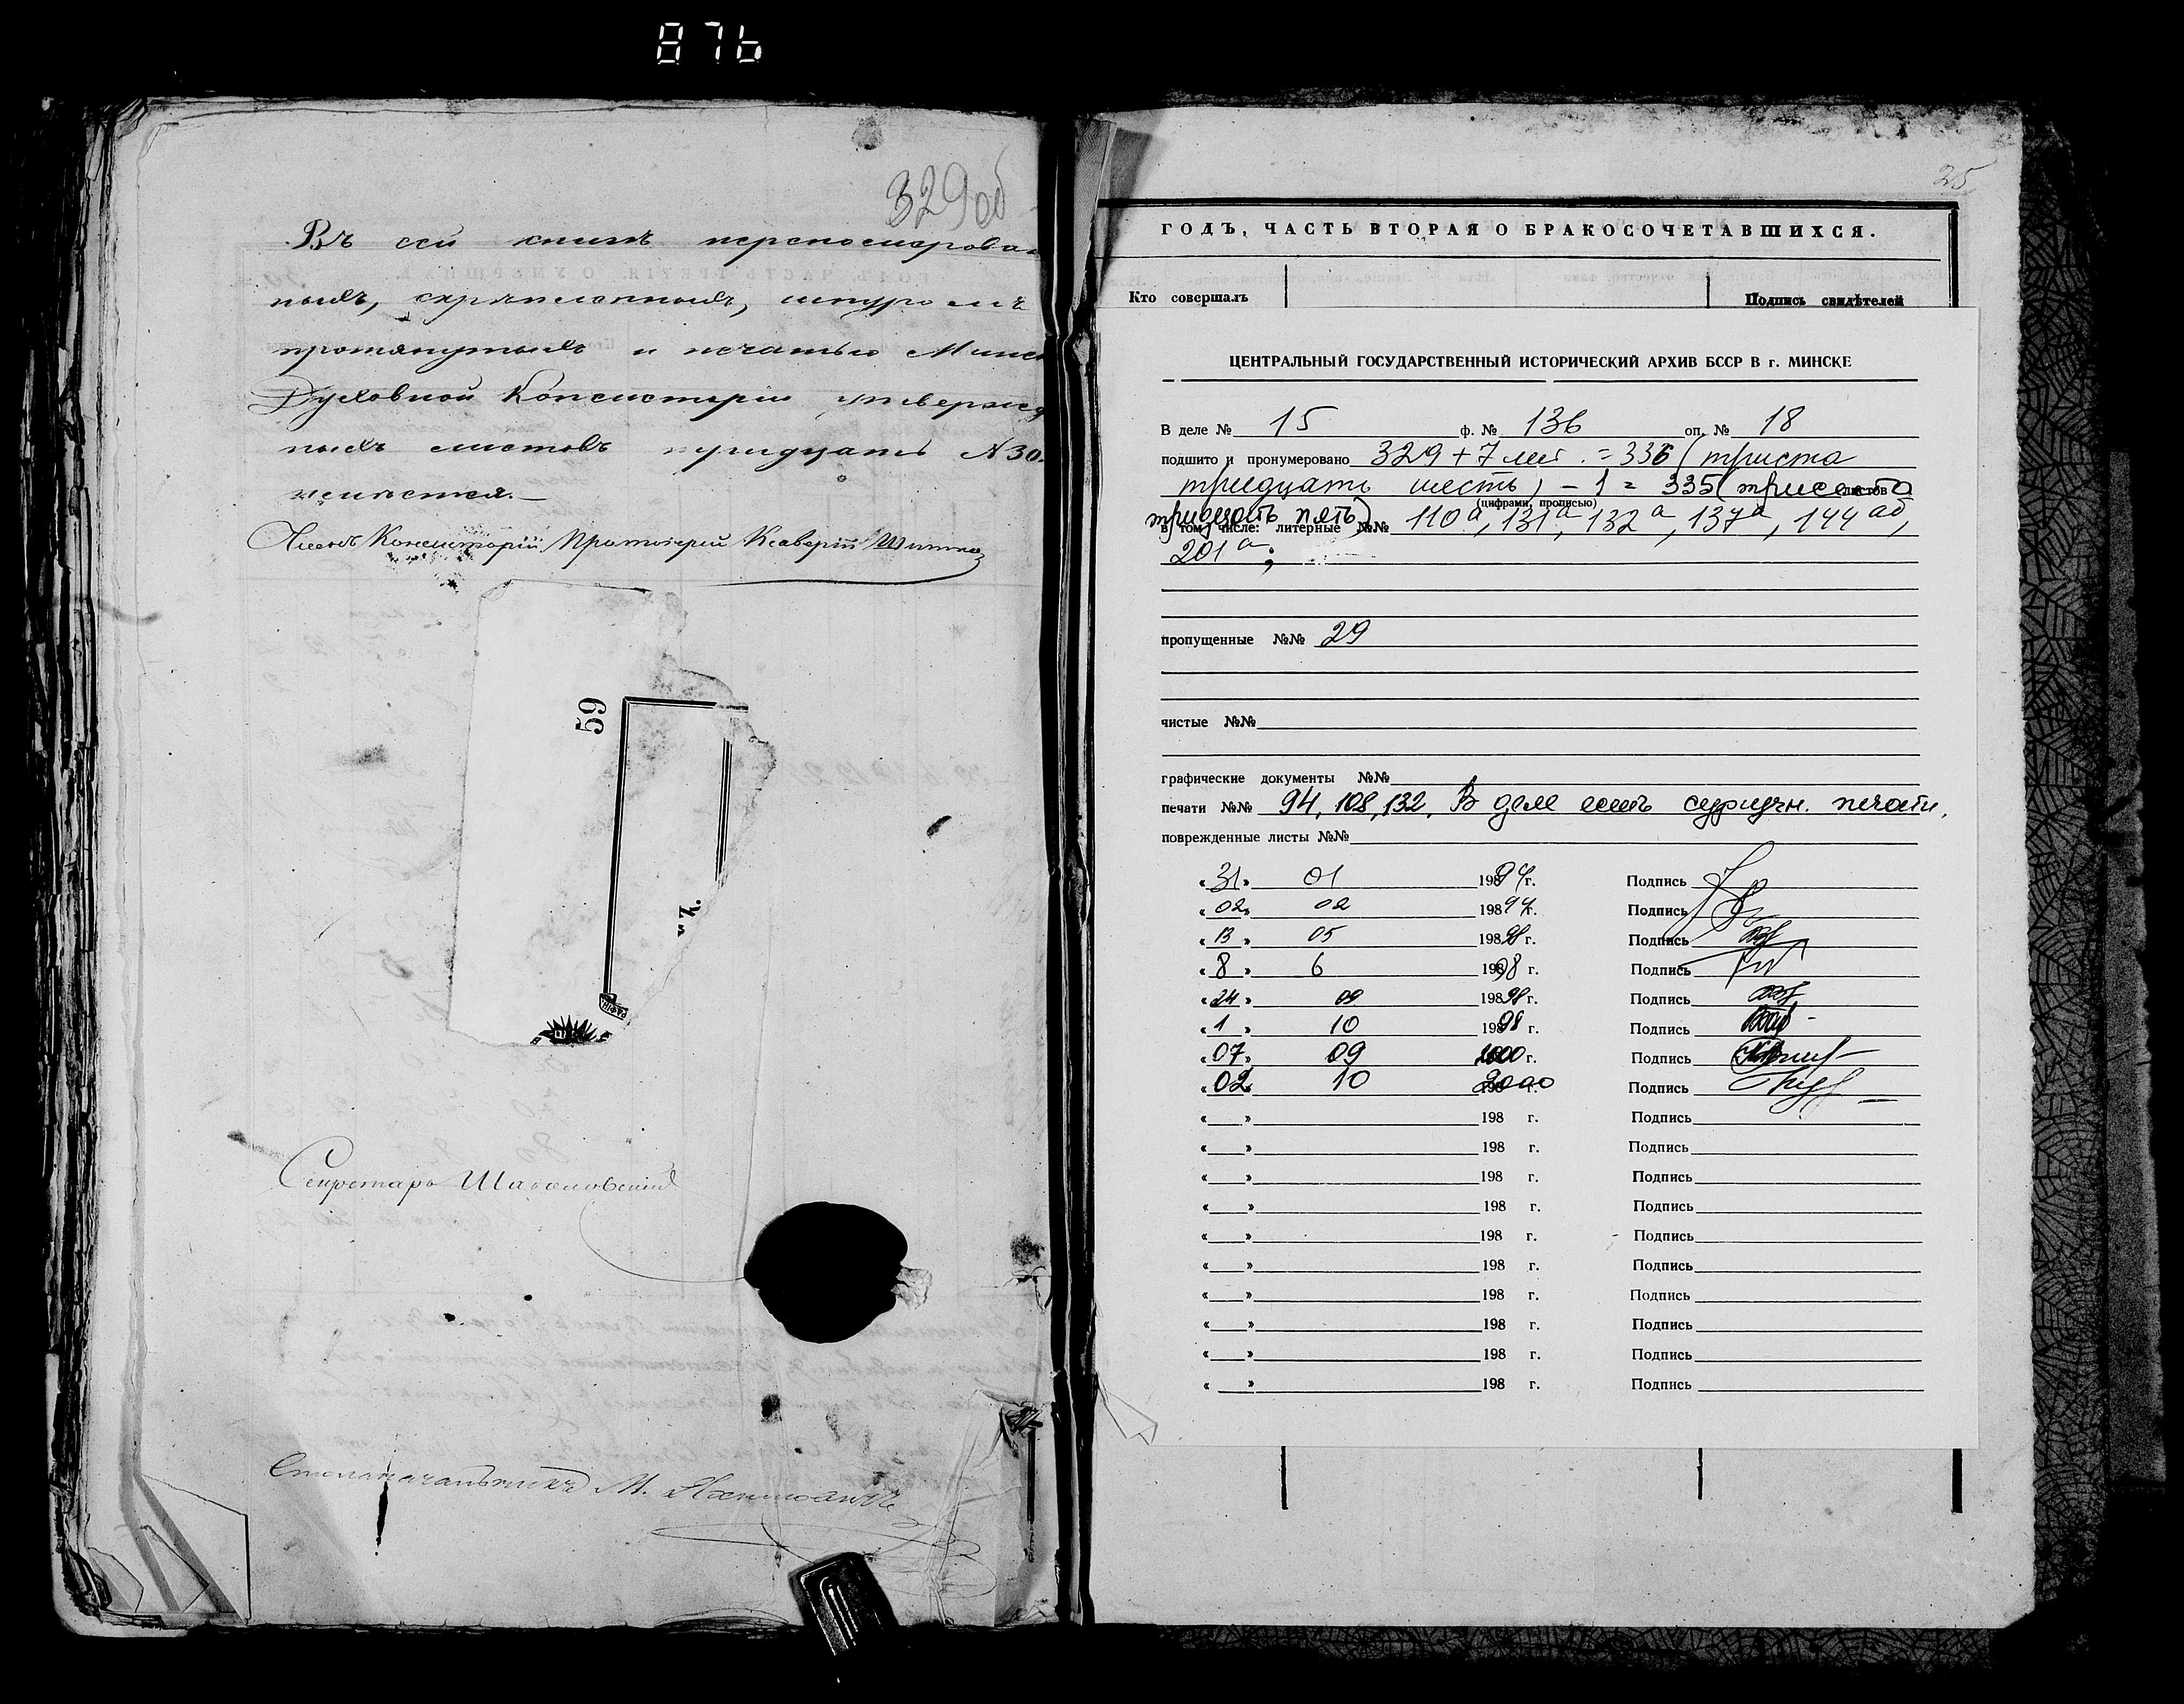 876
329об
Въ сей книгѣ перенумерован
ныхъ, скрѣпленныхъ, шнуромъ
протянутыхъ и печатью Минск
Духовной Консисторіи утвержд
ныхъ листовъ тридцать №30.
имѣется.
Членъ Консисторіи, Протоіерей Ксаверій
59
Секретарь
Столоначальникъ М.
25
ГОДЪ, ЧАСТЬ ВТОРАЯ О БРАКОСОЧЕТАВШИХСЯ.
Кто совершалъ Подпись свидѣтелей
ЦЕНТРАЛЬНЫЙ ГОСУДАРСТВЕННЫЙ ИСТОРИЧЕСКИЙ АРХИВ БССР В г. МИНСКЕ
В деле № 15 ф. № 136 оп. № 18
подшито и пронумеровано 329 + 7 лит. = 336 (триста
тридцать шесть) - 1 = 335 (триста листов
(цифрами, прописью)
тридцать пять)
в том числе: литерные №№ 110а, 131а, 132а, 137а, 144аб,
201а;
пропущенные №№ 29
чистые №№
графические документы №№
печати №№ 94, 108, 132. В деле есть сургучн. печати.
поврежденные листы №№
«31» 01 1994г. Подпись
«02» 02 1994г. Подпись
«13» 05 1998 г. Подпись
«8» 6 1998 г. Подпись
«24» 09 1998 г. Подпись
«1» 10 1998 г. Подпись
«07» 09 2000 г. Подпись
«02» 10 2000 г. Подпись
« » 198 г. Подпись
« » 198 г. Подпись
« » 198 г. Подпись
« » 198 г. Подпись
« » 198 г. Подпись
« » 198 г. Подпись
« » 198 г. Подпись
« » 198 г. Подпись
« » 198 г. Подпись
« » 198 г. Подпись